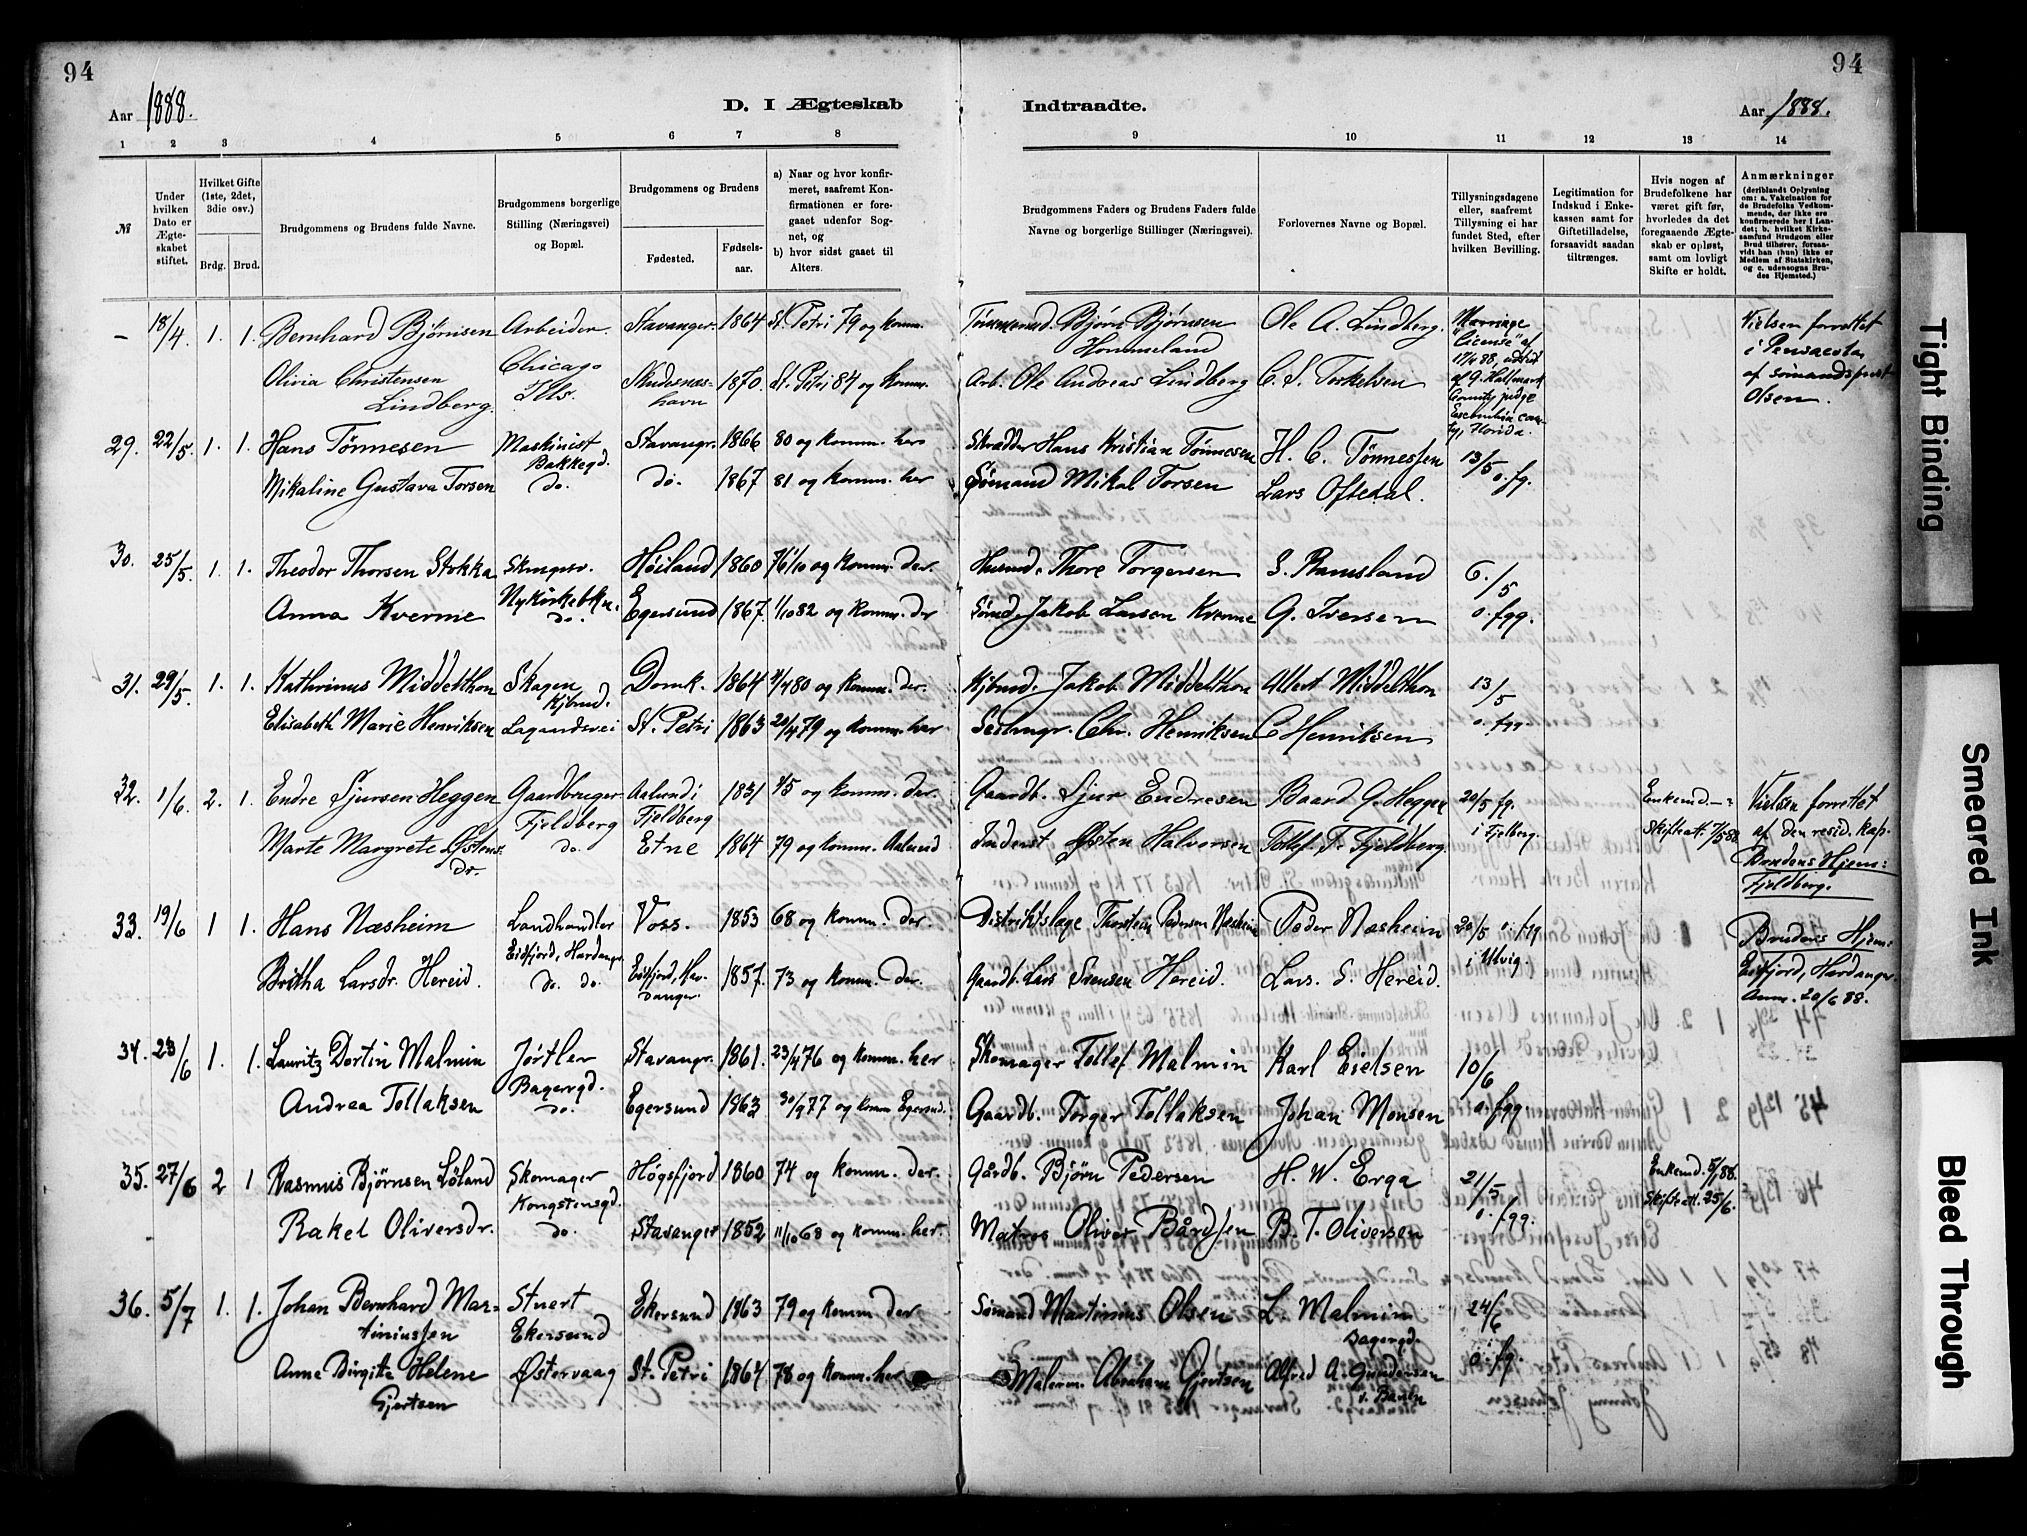 94
94
Aar 1888.
D. I Ægteskab
Indtraadte.
Aar 1888.
1 2 3 4 5 6 7 8 9 10 11 12 13 14
№
Under hvilken Dato er Ægteskabet stiftet.
Hvilket Gifte (1ste, 2det, 3die osv.)
Brdg. Brud.
Brudgommens og Brudens fulde Navne.
Brudgommens borgerlige Stilling (Næringsvei) og Bopæl.
Brudgommens og Brudens
Fødested.
Fødselsaar.
a) Naar og hvor konfirmeret, saafremt Konfirmationen er foregaaet udenfor Sognet, og
b) hvor sidst gaaet til Alters.
Brudgommens Faders og Brudens Faders fulde Navne og borgerlige Stillinger (Næringsvei).
Forlovernes Navne og Bopæl.
Tillysningsdagene eller, saafremt Tillysning ei har fundet Sted, efter hvilken Bevilling.
Legitimation for Indskud i Enkekassen samt for Giftetilladelse, forsaavidt saadan tiltrænges.
Hvis nogen af Brudefolkene har været gift før, hvorledes da det foregaaende Ægteskab er opløst, samt om lovligt Skifte er holdt.
Anmærkninger
(deriblandt Oplysning om: a. Vakcination for de Brudefolks Vedkommende, der ikke ere konfirmerede her i Landet; b. hvilket Kirkesamfund Brudgom eller Brud tilhører, forsaavidt han (hun) ikke er Medlem af Statskirken, og c. udensogns Brudes Hjemsted.)
– 18/4. 1. 1. Bernhard Bjørnsen Arbeider Stavanger. 1864 St. Petri 79 og komm. Bjørn Bjørnsen Hommeland Ole A. Lindberg. Marriage "License" af 17/4 88, udstedt af G. Hallmark County judge Escambia county, Florida. Vielsen forrettet i Pensacola af sømandsprest Olsen.
Olivia Christensen Lindberg. Chicago Ills. Skudesnæshavn 1870. St. Petri 84 og komm. Arb. Ole Andreas Lindberg C. S. Torkelsen
29. 22/5. 1. 1. Hans Tönnesen Maskinist Bakkegd. Stavangr. 1866 80 og komm. her Skrædder Hans Kristian Tönnesen H. C. Tönnessen 13/5 o. fg.
Mikaline Gustava Torsen do. do. 1867 81 og komm. her Sømand Mikal Torsen Lars Oftedal.
30. 25/5. 1. 1. Theodor Thorsen Stokka Nykirkebkn. Høiland 1860 76 1/10 og komm. der. Husmd. Thore Torgersen S. Ramsland 6./5 o. fgg.
Anna Kverme do. Egersund 1867. 1/10 82 og komm. der Sømd. Jakob Larsen Kverme G. Iversen
31. 29/5. 1. 1. Kathrinus Middelthon Skagen Kjbmd. Domk. 1864 4/4 80 og komm. der. Kjbmd. Jakob Middelthon Albert Middelthon 13/5 o. fgg.
Elisabeth Marie Henriksen Lagaardsvei St. Petri 1863 20/4 79 og komm. her Seilmgr. Chr. Henriksen C Henriksen
32. 1/6. 2. 1. Endre Sjursen Heggen Gaardbruger Fjeldberg Aalund i Fjeldberg 1831 45 og komm. der. Gaardb. Sjur Endresen Baard G. Heggen 20/5 fg. i Fjelberg. Enkemd. Skifteatt. 7/5 88. Vielsen forrettet af den resid. kap.
Marte Margrete Østensdr. do. Etne 1864 79 og komm. Aalund Inderst Østen Halvorsen Tollef T. Fjeldberg. Brudens Hjem: Fjeldberg.
33. 19/6 1 1. Hans Næsheim Landhandler Eidfjord, Hardanger. Voss. 1853 68 og komm. der. Distriktslæge Thorstein Pedersen Næsheim Peder Næsheim 20/5 o. fgg i Ulvig. Brudens Hjem:
Britha Larsdr. Hereid. do. do. Eidfjord, Hardanger. 1857. 73 og komm. der. Gaardb. Lars Svensen Hereid. Lars. S. Hereid. Eidfjord, Hardanger. Anm. 20/6 88.
34. 23/6 1. 1. Lauritz Dortin Malmin Jørtler Bagergd. Stavangr. 1861. 23/4 76 og komm. her Skomager Tollef Malmin Karl Eielsen 10/6 o. fgg.
Andrea Tollaksen do. Egersund 1863 30/9 77 og komm Egersund. Gaardb. Torger Tollaksen Johan Monsen
35. 27/6 2 1 Rasmus Bjørnsen Löland Skomager Kongstensgd. Høgsfjord 1860 74 og komm. der. Gårdb. Bjørn Pedersen H. W. Erga 21/5 o. fgg. Enkemd. 5/1 88. Skifteatt. 25/6.
Rakel Oliversdr. do. Stavanger 1852 11/10 68 og komm. her. Matros Oliver Bårdsen B. T. Oliversen
36. 5/7 1. 1. Johan Bernhard Martiniussen Stuert Ekersund Ekersund 1863 79 og komm. der Sömand Martinius Olsen L. Malmin Bagergd. 24/6 o. fg.
Anne Birgitte Helene Gjertsen Østervaag St. Petri 1864 78 og komm. her Malerm. Abraham Gjertsen Alfred A. Gundersen
Tight Binding
Smeared Ink
Bleed Through